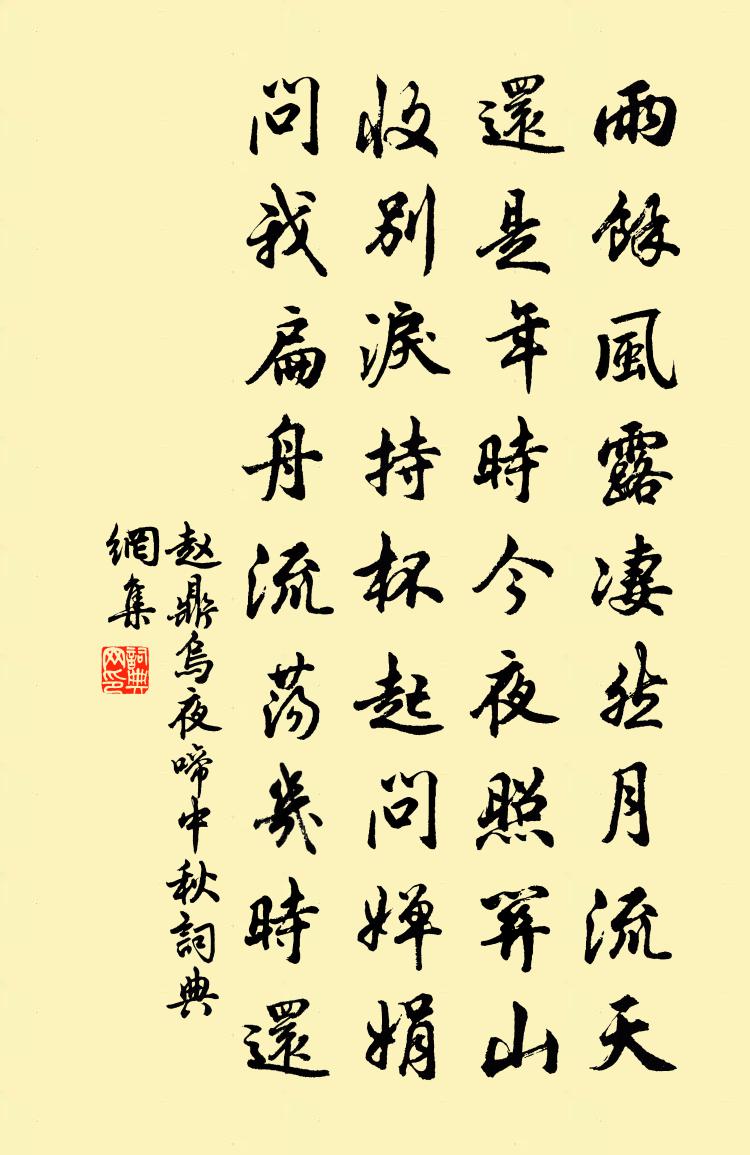 雨餘風露凄然月流天
還是年時今夜照關山
收別淚持杯起問嬋娟
問我扁舟流蕩幾時還
赵鼎烏夜啼中秋詞典
網集
詞典
网印